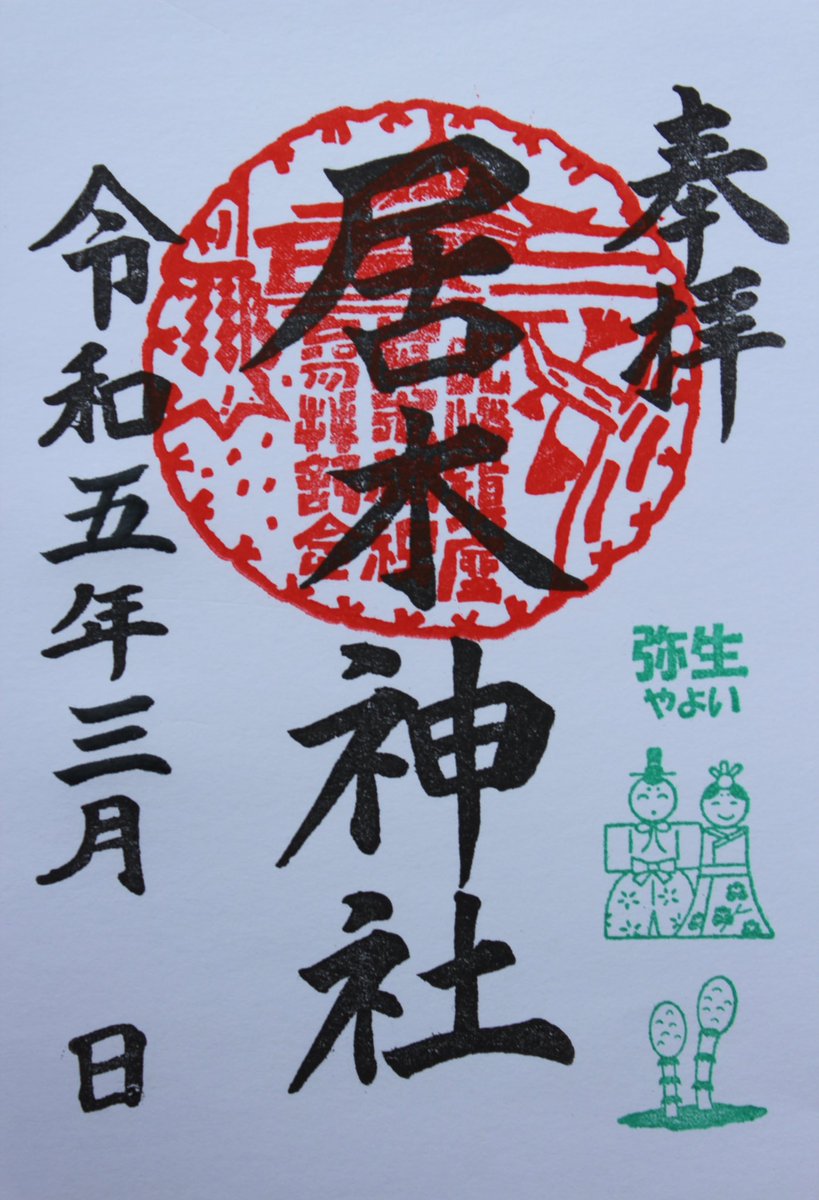 奉拝
居木神社
弥生
やよい
令和五年三月 日